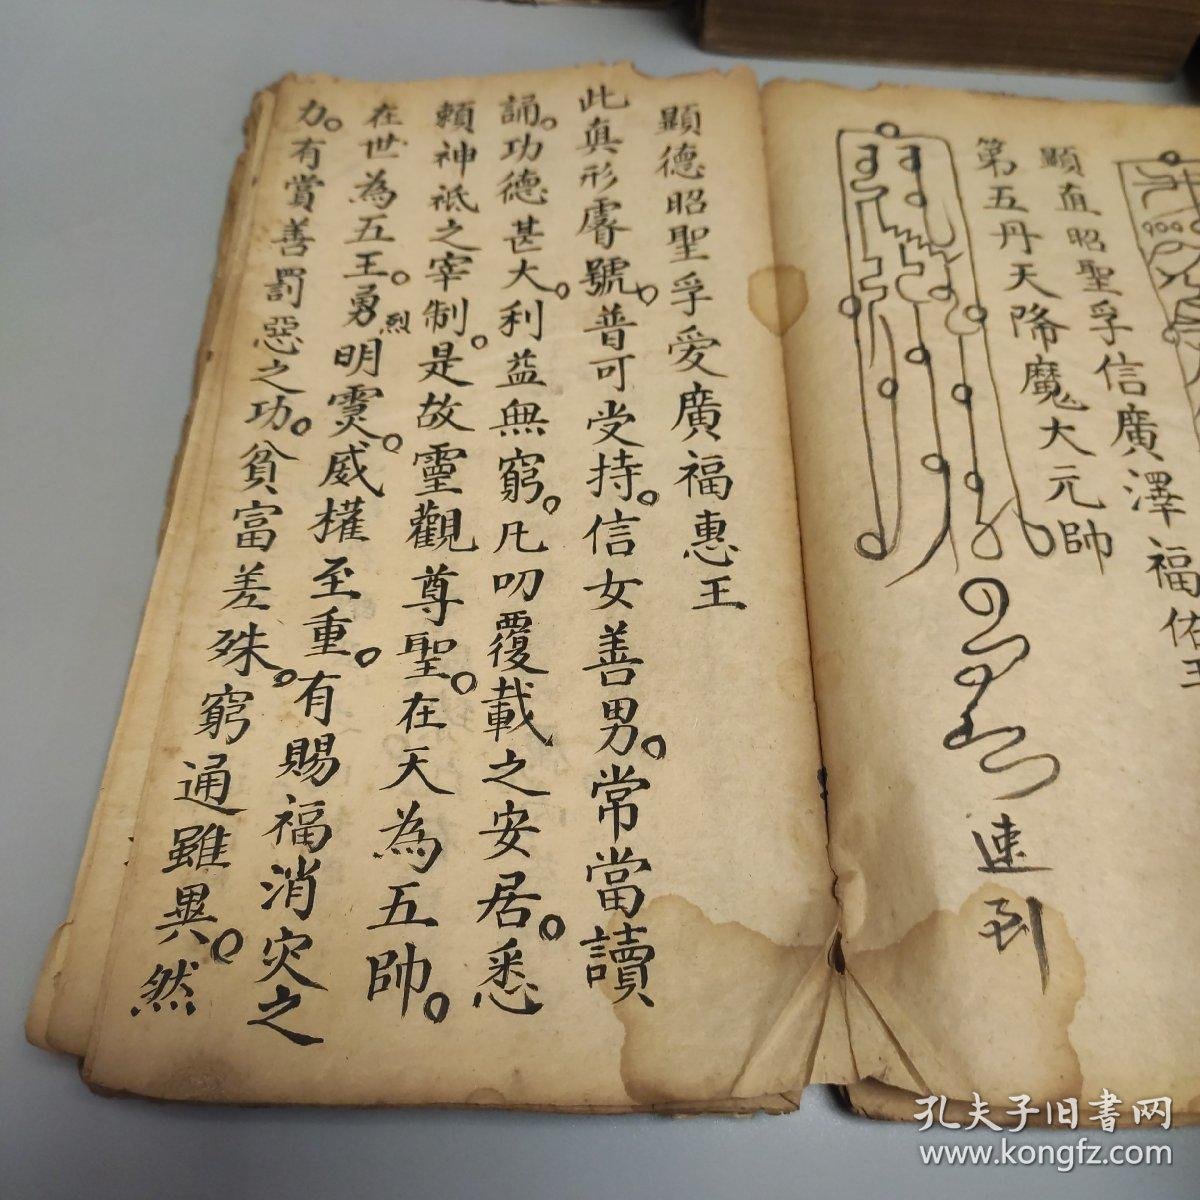 顯直昭聖孚信廣澤福佑王
第五丹天降魔大元帥
速到
顯德昭聖孚爱廣福惠王
此真形㝛號。普可受持。信女善男。常當讀
誦。功德甚大。利益無窮。凡叨覆載之安居。悉
賴神祇之宰制。是故靈觀尊聖。在天為五帥。
在世為五王。勇烈明霊。威權至重。有賜福消灾之
力。有賞善罰惡之功。貧富差殊。窮通雖異。然
孔夫子旧书网
www.kongfz.com